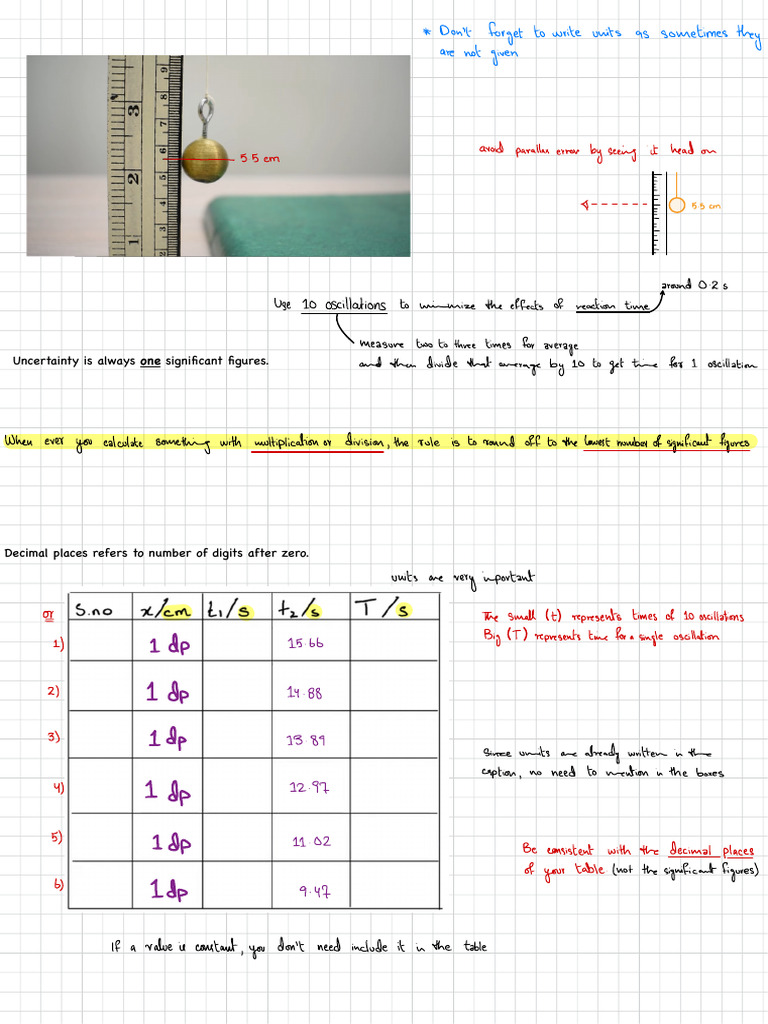 * Don't forget to write units as sometimes they
are not given
3
2
1
8
7
6
5
4
3
5.5 cm
avoid parallax error by seeing it head on
5.5 cm
around 0.2 s
Use 10 oscillations to minimize the effects of reaction time
measure two to three times for average
and then divide that average by 10 to get time for 1 oscillation
Uncertainty is always one significant figures.
When ever you calculate something with multiplication or division, the rule is to round off to the lowest number of significant figures
Decimal places refers to number of digits after zero.
units are very inportant
or S.no x/cm t₁/s t₂/s T/s
1) 1 dp 15.66
2) 1 dp 14.88
3) 1 dp 13.89
4) 1 dp 12.97
5) 1 dp 11.02
6) 1 dp 9.47
The small (t) represents times of 10 oscillations
Big (T) represents time for a single oscillation
Since units are already written in the
caption, no need to mention in the boxes
Be consistent with the decimal places
of your table (not the significant figures)
If a value is constant, you don't need include it in the table